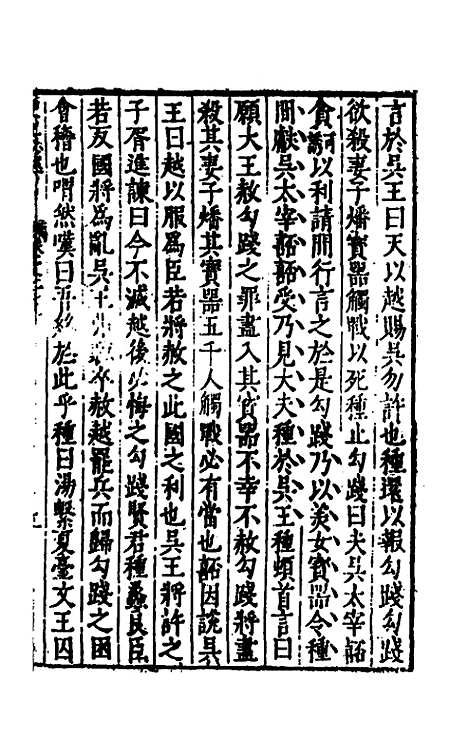 言於吳王曰天以越賜吳勿許也種還以報勾踐勾踐
欲殺妻子燔寶器觸戰以死種止勾踐曰夫吳太宰嚭
貪可誘以利請間行言之於是勾踐乃以美女寶器令種
間獻吳太宰嚭嚭受乃見大夫種於吳王種頓首言曰
願大王赦勾踐之罪盡入其寶器不幸不赦勾踐將盡
殺其妻子燔其寶器五千人觸戰必有當也嚭因說吳
王曰越以服為臣若將赦之此國之利也吳王將許之
子胥進諫曰今不滅越後必悔之勾踐賢君種蠡良臣
若反國將為亂吳王弗聽卒赦越罷兵而歸勾踐之困
會稽也喟然嘆曰吾終於此乎種曰湯繫夏臺文王囚